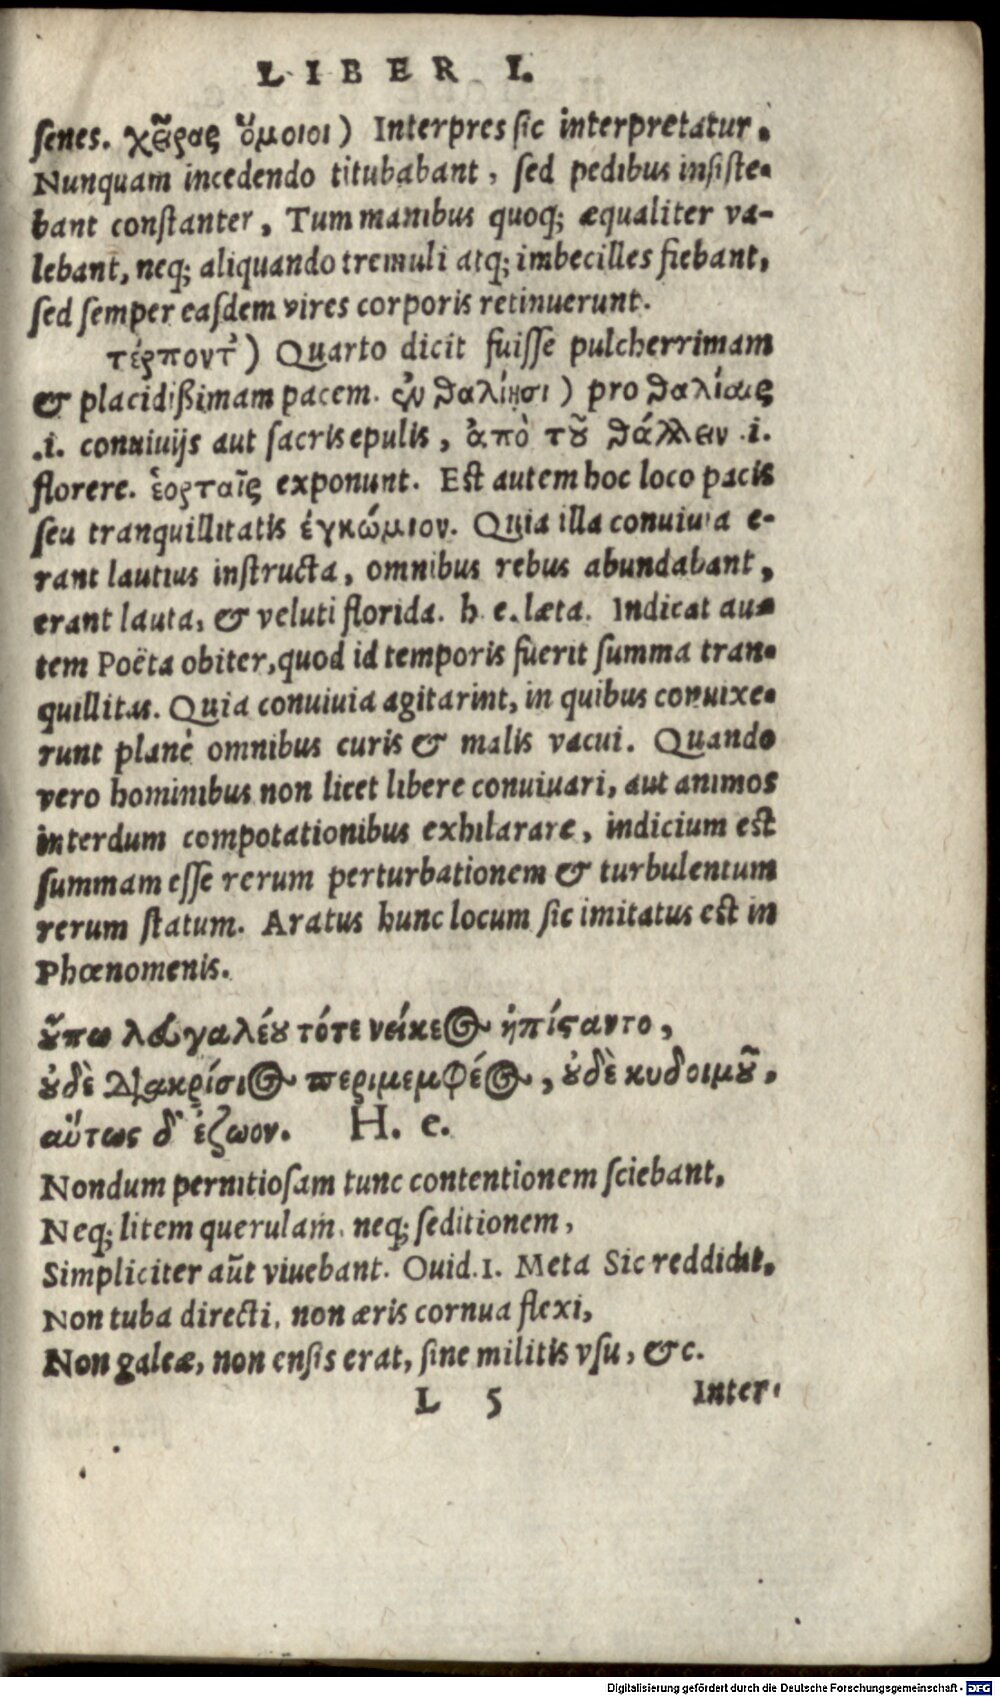 LIBER I.
senes. χεῖρας ὅμοιοι) Interpres sic interpretatur.
Nunquam incedendo titubabant, sed pedibus insiste-
bant constanter, Tum manibus quoq; æqualiter va-
lebant, neq; aliquando tremuli atq; imbecilles fiebant,
sed semper easdem vires corporis retinuerunt.
τέρποντ') Quarto dicit fuisse pulcherrimam
& placidißimam pacem. ἐν θαλίῃσι) pro θαλίαις
.i. conuiuijs aut sacris epulis, ἀπὸ τοῦ θάλλειν .i.
florere. ἑορταῖς exponunt. Est autem hoc loco pacis
seu tranquillitatis ἐγκώμιον. Quia illa conuiuia e-
rant lautius instructa, omnibus rebus abundabant,
erant lauta, & veluti florida. h e. læta. Indicat au-
tem Poëta obiter, quod id temporis fuerit summa tran-
quillitas. Quia conuiuia agitarint, in quibus conuixe-
runt planè omnibus curis & malis vacui. Quando
vero hominibus non licet libere conuiuari, aut animos
interdum compotationibus exhilarare, indicium est
summam esse rerum perturbationem & turbulentum
rerum statum. Aratus hunc locum sic imitatus est in
Phœnomenis.
οὔπω λευγαλέου τότε νείκεος ἠπίσαντο,
οὐδὲ διακρίσιος περιμεμφέος, οὐδὲ κυδοιμοῦ.
αὕτως δ' ἔζωον. H. e.
Nondum pernitiosam tunc contentionem sciebant,
Neq; litem querulam, neq; seditionem,
Simpliciter aūt viuebant. Ouid. 1. Meta Sic reddidit.
Non tuba directi, non æris cornua flexi,
Non galeæ, non ensis erat, sine militis vsu, &c.
L 5 Inter-
Digitalisierung gefördert durch die Deutsche Forschungsgemeinschaft - DFG